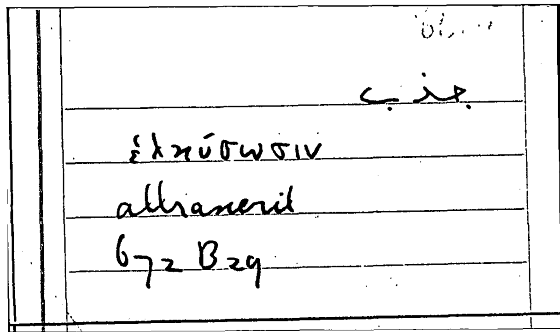 جذب
ἑλκύσωσιν
attraxerit
672 B29